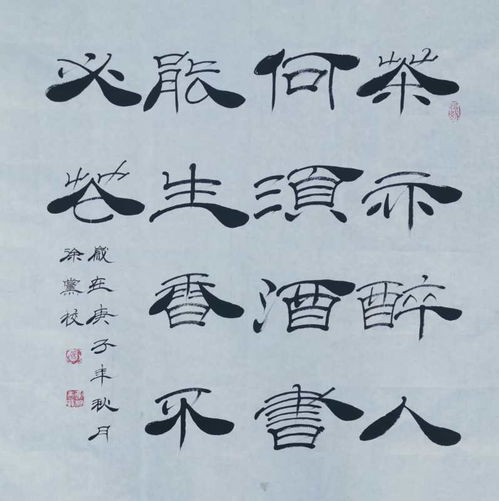 茶亦醉人
何須酒書
能生香不
必花
歲在庚子年秋月
涂黨校